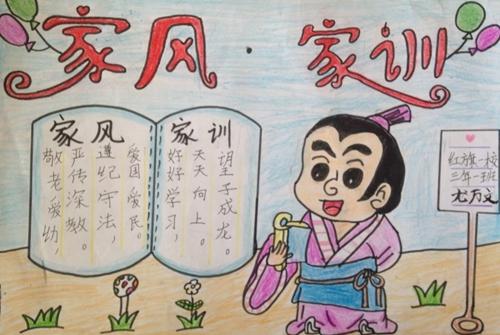 家风·家训
家风
敬老爱幼，
严传深教。
遵纪守法，
爱国爱民。
家训
好好学习，
天天向上。
望子成龙。
红旗一校
三年一班
尤 文